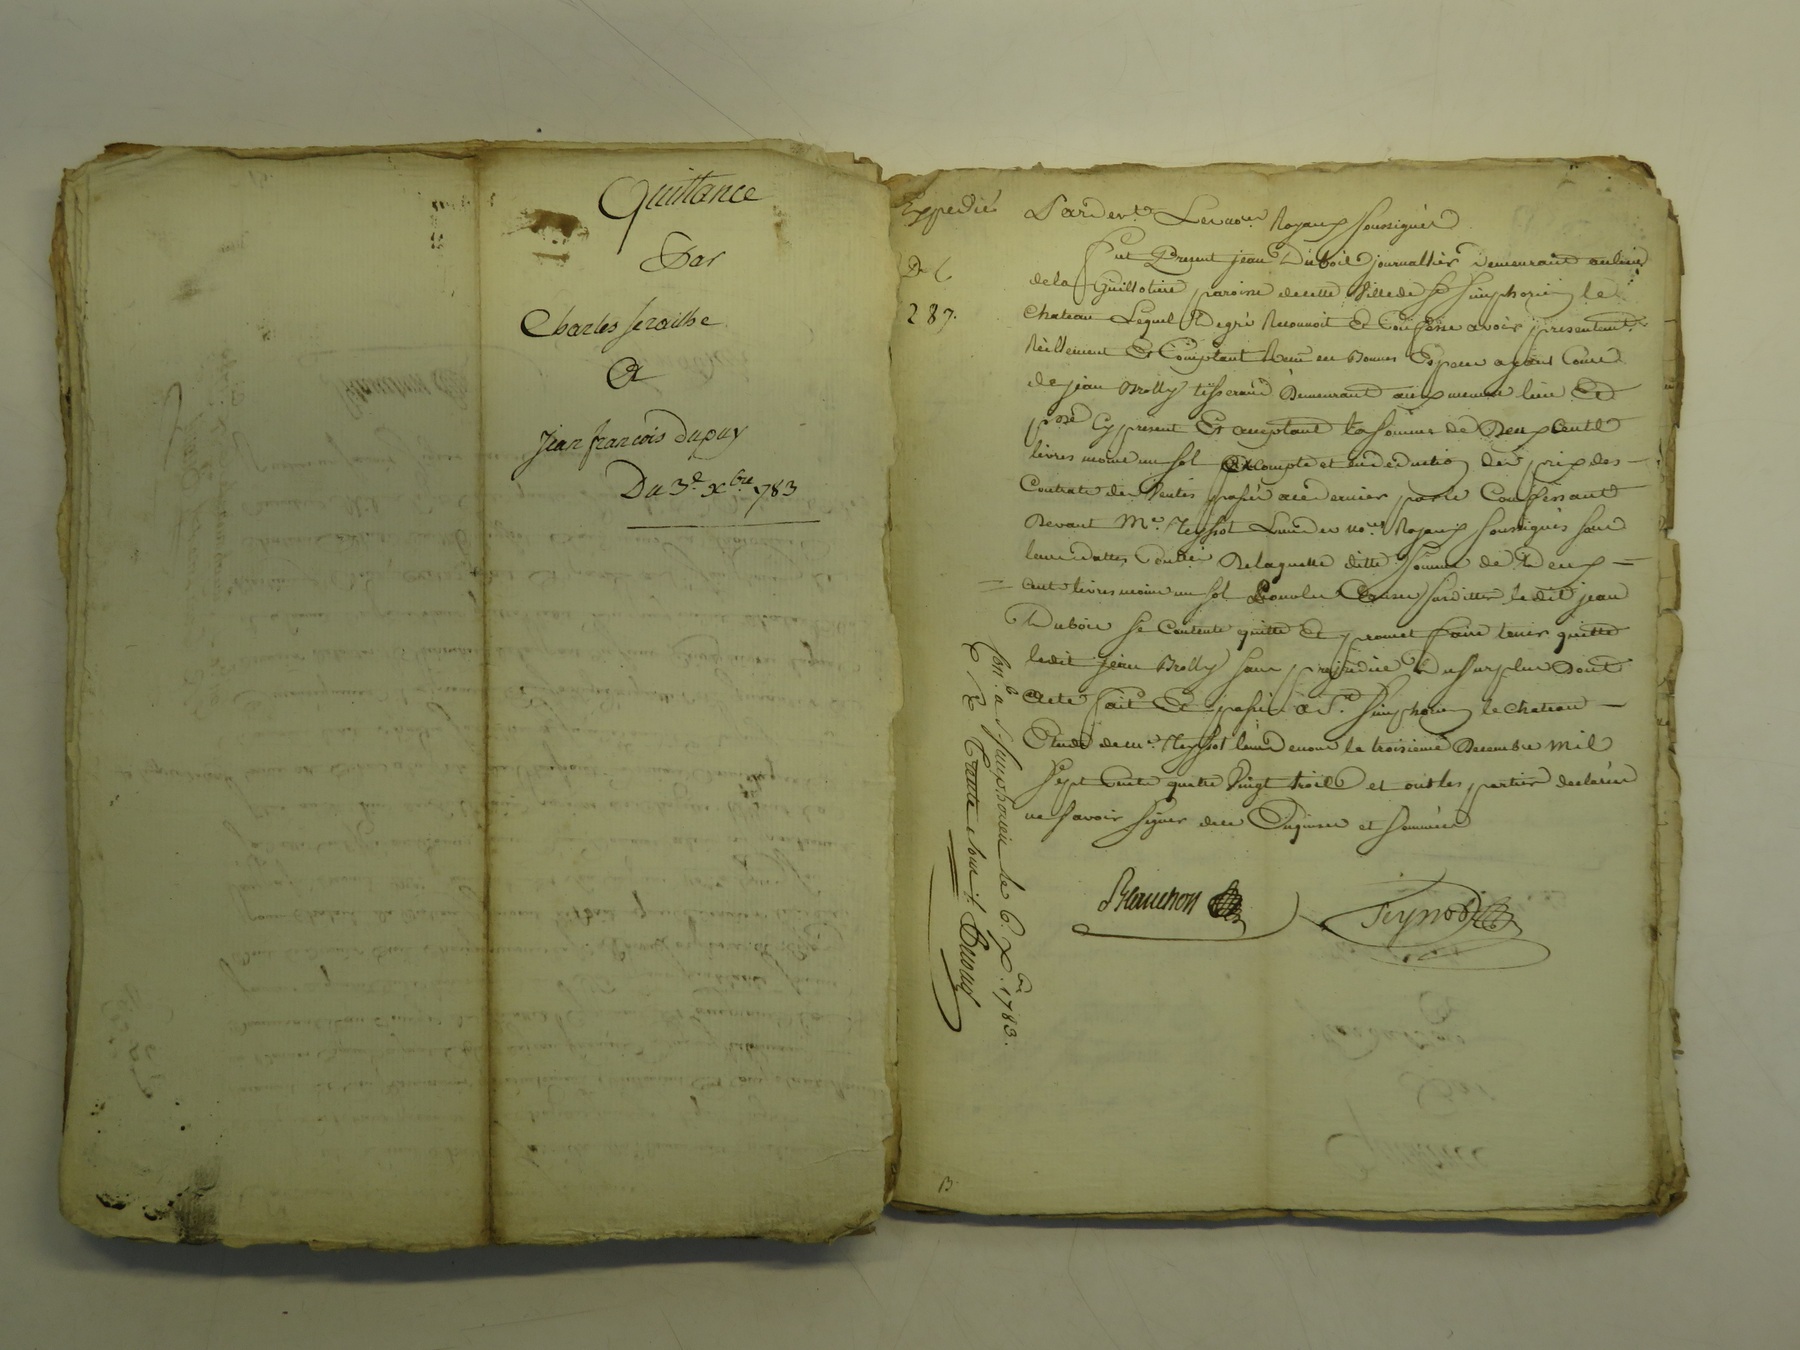 Quittance
Par
Charles
Et
Jean françois Dupuy
Du 3e xbre 1783
Expedié
287.
Pardevt Les nores Royaux soussignés
fut Present jean Dubois journallier demeurant au lieu
de la Guillotiere paroisse de cette Ville de St Simphorien le
Chateau Lequel De gré Reconnoit Et Confesse avoir presentemt
Réellement Et Comptant Reçu en Bonnes Especes ayant Cours
de jean Brolly tisserand Demeurant au même lieu Et
psse Cy present Et acceptant la somme de Deux Cents
livres moins un sol acompte et en deduction des prix des
Contrats de Ventes passés
Devant Me L'un des nores Royaux soussignés sous
leurs dattes De laquelle ditte somme de Deux
= cent livres moins un sol ledit jean
Dubois se Contente quitte Et promet faire tenir quitte
ledit jean Brolly sans prejudice Du surplus Dont
Acte fait Et passé à St Simphorien le Chateau
Etude de me l'un de nous le troisieme Decembre mil
sept Cents quatre Vingt trois et ont les parties declarées
ne savoir signer de ce Enquises et sommées
Blanchon
Conlé a St Simphorien le 6. xbre 1783.
B